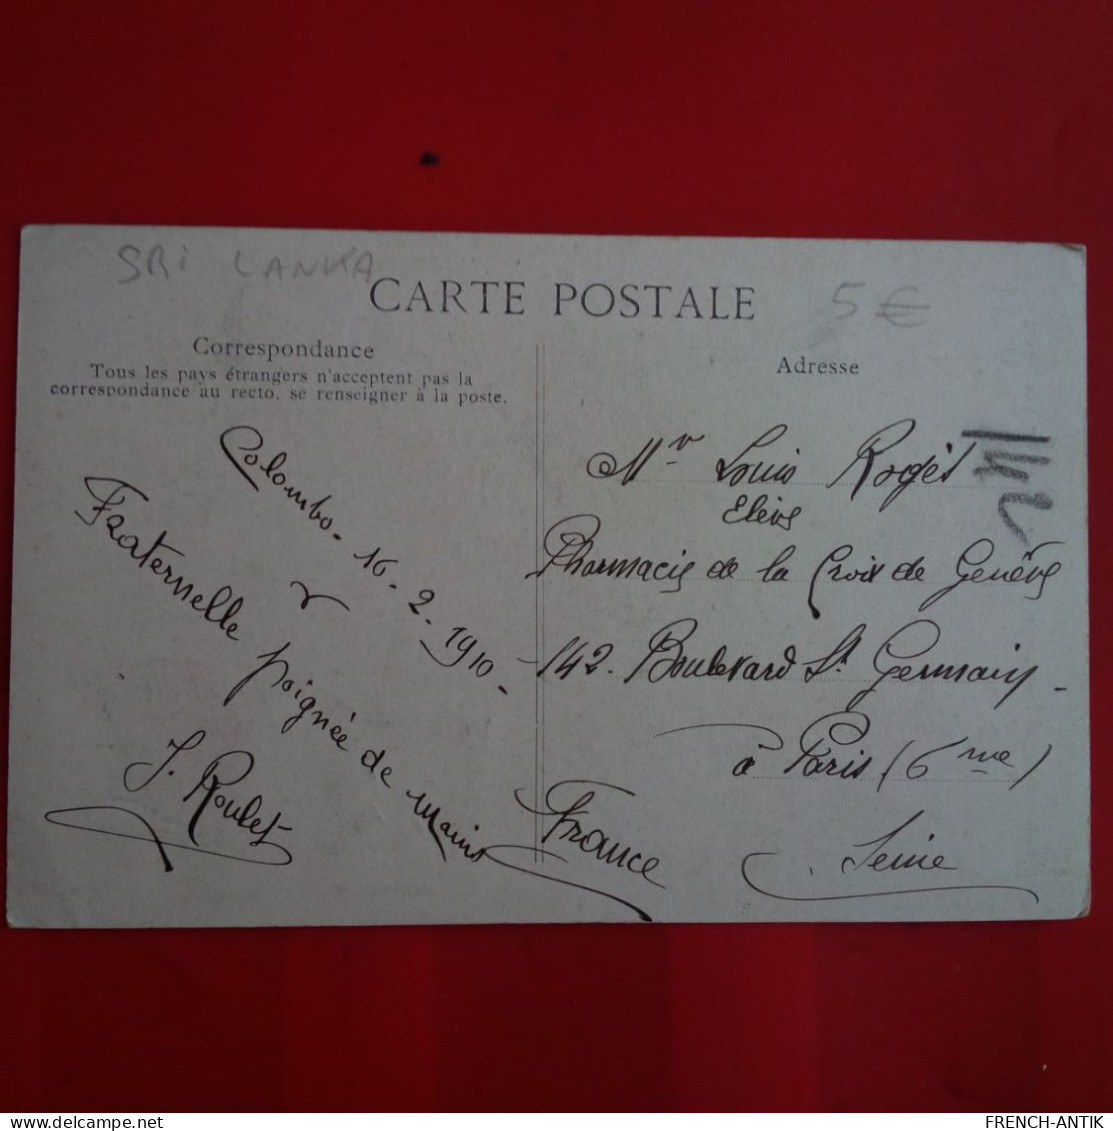 SRI LANKA
CARTE POSTALE
5€
Correspondance
Tous les pays étrangers n'acceptent pas la
correspondance au recto, se renseigner à la poste.
Colombo - 16 - 2 - 1910 -
Fraternelle poignée de mains
J. Roulet
Adresse
Mr Louis Rogét
Elève
Pharmacie de la Croix de Genève
142 - Boulevard St Germain -
à Paris (6me)
Seine
France
142
delcampe.net
FRENCH-ANTIK